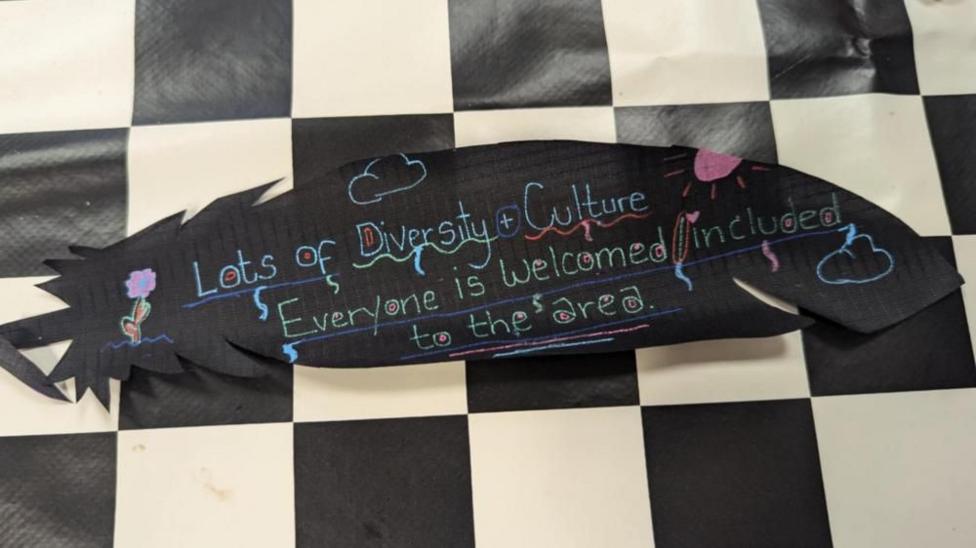 Lots of Diversity + Culture
Everyone is welcomed / included
to the area.